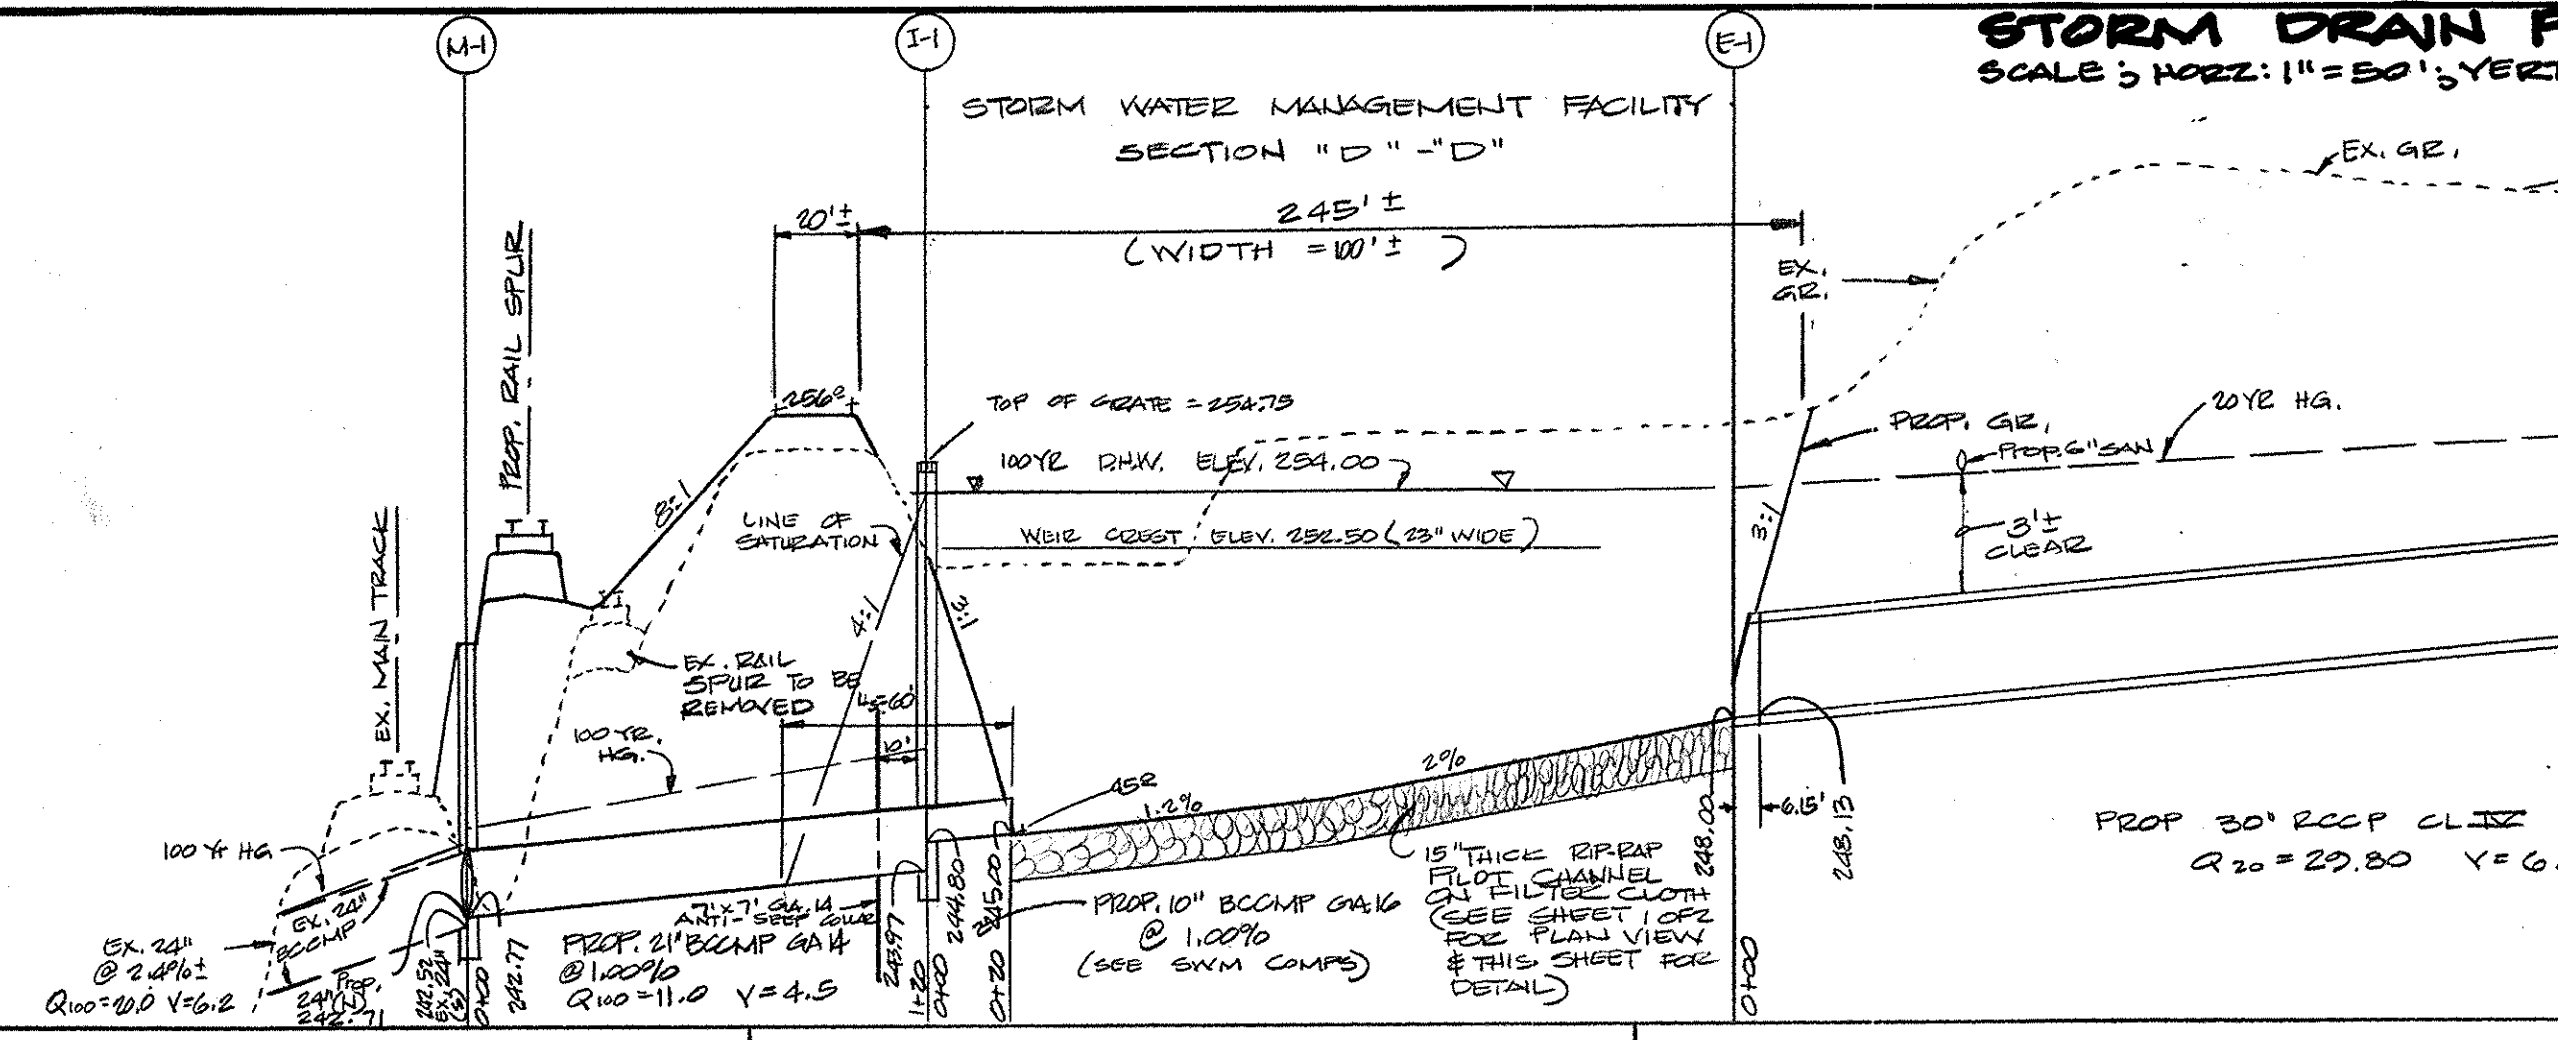 M-1
I-1
E-1
STORM DRAIN
SCALE; HORZ: 1"=50'; VERT
STORM WATER MANAGEMENT FACILITY
SECTION "D"-"D"
EX. GR.
20'±
245'±
(WIDTH = 100'±)
PROP. RAIL SPUR
EX.
GR.
256.0
TOP OF GRATE = 254.75
20 YR HG.
PROP. GR.
PROP. 6" SAN
100 YR D.H.W. ELEV. 254.00
3:1
LINE OF
SATURATION
WEIR CREST ELEV. 252.50 (23" WIDE)
3:1
3'±
CLEAR
EX. MAIN TRACK
4:1
3:1
EX. RAIL
SPUR TO BE
REMOVED
100 YR.
HG.
10'
2%
452
1.2%
248.00
6.15'
248.13
PROP 30" RCCP CL IV
Q20 = 29.80 V = 6.
100 Yr HG
EX. 24"
BCCMP
EX. 24"
@ 2.4%±
Q100 = 20.0 V=6.2
Prop.
24"(N)
242.71
242.52
EX. 24"
(S)
0+00
242.77
7'x7' GA. 14
ANTI-SEEP COLLAR
PROP. 21" BCCMP GA 14
@ 1.00%
Q100 = 11.0 V = 4.5
243.97
1+20
0+00
244.80
0+20
245.00
PROP. 10" BCCMP GA.16
@ 1.00%
(SEE SWM COMPS)
15" THICK RIP-RAP
PILOT CHANNEL
ON FILTER CLOTH
(SEE SHEET 1 OF 2
FOR PLAN VIEW
& THIS SHEET FOR
DETAIL)
0+00